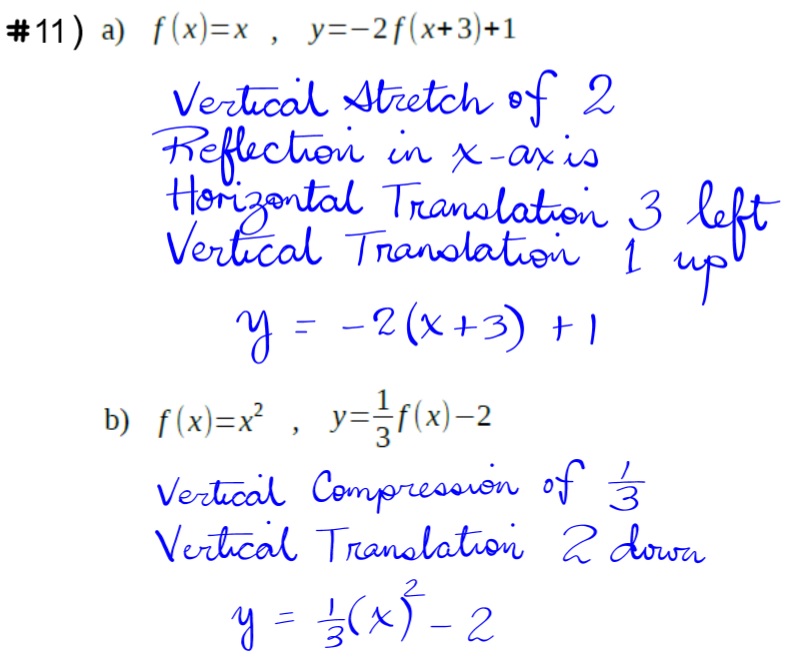 #11) a) f(x)=x , y=−2f(x+3)+1
Vertical Stretch of 2
Reflection in x-axis
Horizontal Translation 3 left
Vertical Translation 1 up
y = -2(x+3) + 1
b) f(x)=x² , y=1/3f(x)−2
Vertical Compression of 1/3
Vertical Translation 2 down
y = 1/3(x)² - 2